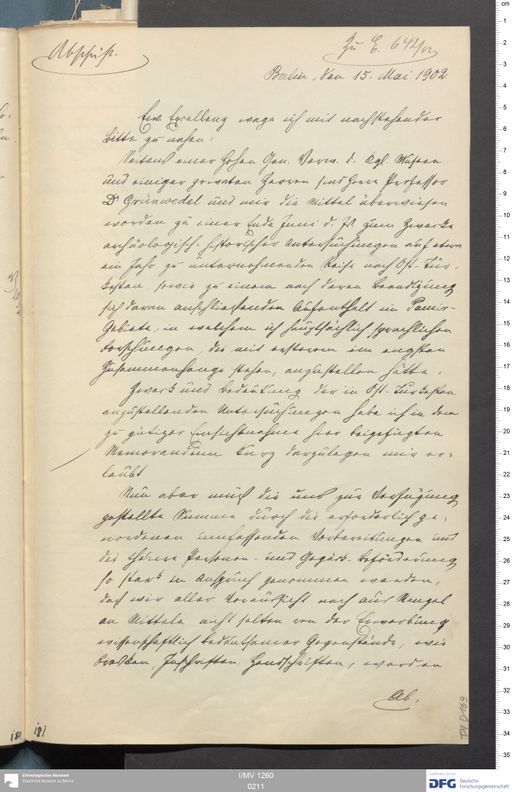 Abschrift.
Zu E. 642/02
Berlin, den 15. Mai 1902
Ew. Excellenz wage ich mit nachstehender
Bitte zu nahen:
Seitens einer hohen Gen. Verw. d. Kgl. Museen
und einiger privaten Herren sind Herrn Professor
Dr Grünwedel und mir die Mittel überwiesen
worden zu einer Ende Juni d. Js zum Zwecke
archäologisch-historischer Untersuchungen auf etwa
ein Jahr zu unternehmenden Reise nach Ost-Tur-
kestan sowie zu einem nach deren Beendigung
sich daran anschließenden Aufenthalt im Pamir-
Gebiete, in welchem ich hauptsächlich sprachlichen
Forschungen, die mit ersterem im engsten
Zusammenhange stehen, anzustellen hätte.
Zweck und Bedeutung der in Ost-Turkestan
anzustellenden Untersuchungen habe ich in dem
zu gütiger Einsichtnahme hier beigefügten
Memorandum kurz darzulegen mir er-
laubt
Nun aber muß die uns zur Verfügung
gestellte Summe durch die erforderlich ge-
wordenen umfassenden Vorbereitungen und
die theure Personen- und Gepäck-Beförderung
so stark in Anspruch genommen werden,
daß wir aller Voraussicht nach aus Mangel
an Mitteln nicht selten von der Erwerbung
wissenschaftlich bedeutsamer Gegenstände, wie
Inschriften, Handschriften, werden
Ab.
TA D 169
181
I/MV 1260
0211
Ethnologisches Museum
Staatliche Museen zu Berlin
DFG Deutsche
Forschungsgemeinschaft
cm
0
1
2
3
4
5
6
7
8
9
10
11
12
13
14
15
16
17
18
19
20
21
22
23
24
25
26
27
28
29
30
31
32
33
34
35